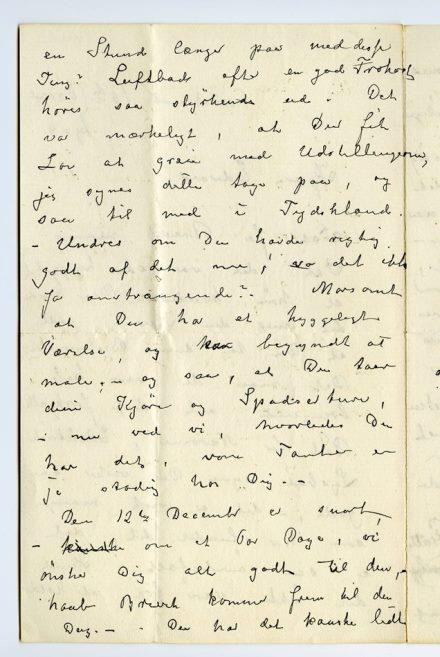 en Stund længer paa med disse
Ting? Luftbad efter en god Frokost
høres saa styrkende ud. Det
var mærkeligt, at Du fik
Lov at greie med Udstillingerne,
jeg synes dette tage paa, og
saa til med i Tydskland.
- Undres om Du havde rigtig
godt af det nu, det ikke
for anstrængende? Morsomt
at Du har et hyggeligt
Værelse, og begyndt at
male, - og saa, at Du taer
din Kjøre og Spadserture,
- nu ved vi, hvorledes Du
har det, vore Tanker er
jo stadig hos Dig. -
Den 12te December er snart,
- om et Par Dage, vi
ønsker Dig alt godt til den, -
haab Brevet kommer frem til den
Dag. - - Du har det kanske lidt